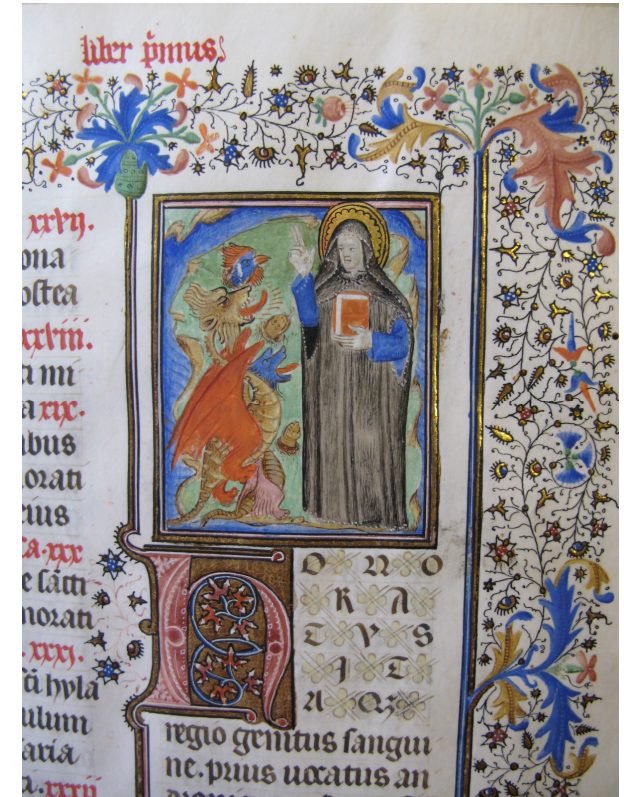 liber p̄mus
xxvij.
ona
ostea
xxviii.
mi
a xix.
orati
ca. xxx
norati
xxxj.
sci hyla
ulum
aria
a. xxxij
HONO
RA
TVS
IT
AQꝫ
regio genitus sangui
ne. prius uocatus an